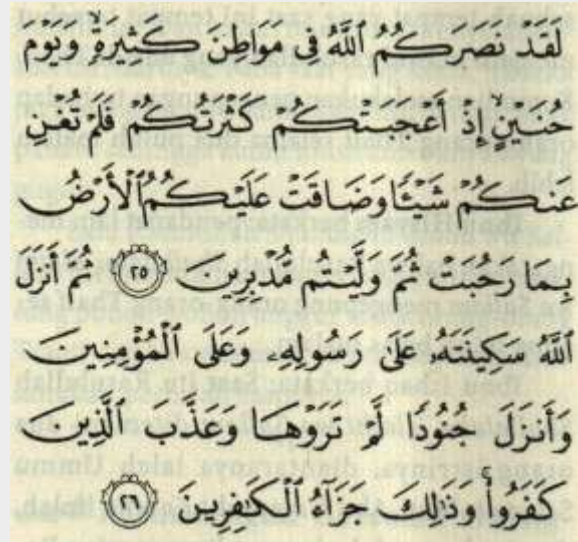 لَقَدْ نَصَرَكُمُ ٱللَّهُ فِى مَوَاطِنَ كَثِيرَةٍ وَيَوْمَ
حُنَيْنٍ إِذْ أَعْجَبَتْكُمْ كَثْرَتُكُمْ فَلَمْ تُغْنِ
عَنكُمْ شَيْـًٔا وَضَاقَتْ عَلَيْكُمُ ٱلْأَرْضُ
بِمَا رَحُبَتْ ثُمَّ وَلَّيْتُم مُّدْبِرِينَ ٢٥ ثُمَّ أَنزَلَ
ٱللَّهُ سَكِينَتَهُۥ عَلَىٰ رَسُولِهِۦ وَعَلَى ٱلْمُؤْمِنِينَ
وَأَنزَلَ جُنُودًا لَّمْ تَرَوْهَا وَعَذَّبَ ٱلَّذِينَ
كَفَرُوا۟ وَذَٰلِكَ جَزَآءُ ٱلْكَـٰفِرِينَ ٢٦